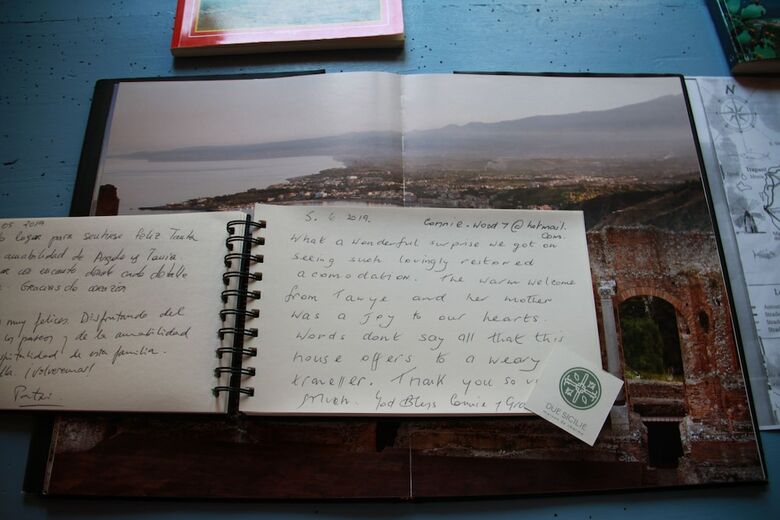 05 2019
lugar para sentirse feliz. Tanta
amabilidad de Angela y
encanto dando cada detalle
Gracias de corazón
muy felices. Disfrutando del
paseos y de la amabilidad
hospitalidad de esta familia.
¡Volveremos!
5. 6. 2019. connie.wood7@hotmail.
com.
What a wonderful surprise we got on
seeing such lovingly restored
acomodation. The warm welcome
from and her mother
was a joy to our hearts.
Words dont say all that this
house offers to a weary
traveller. Thank you so v
much. God Bless Connie &
DUE SICILIE
N